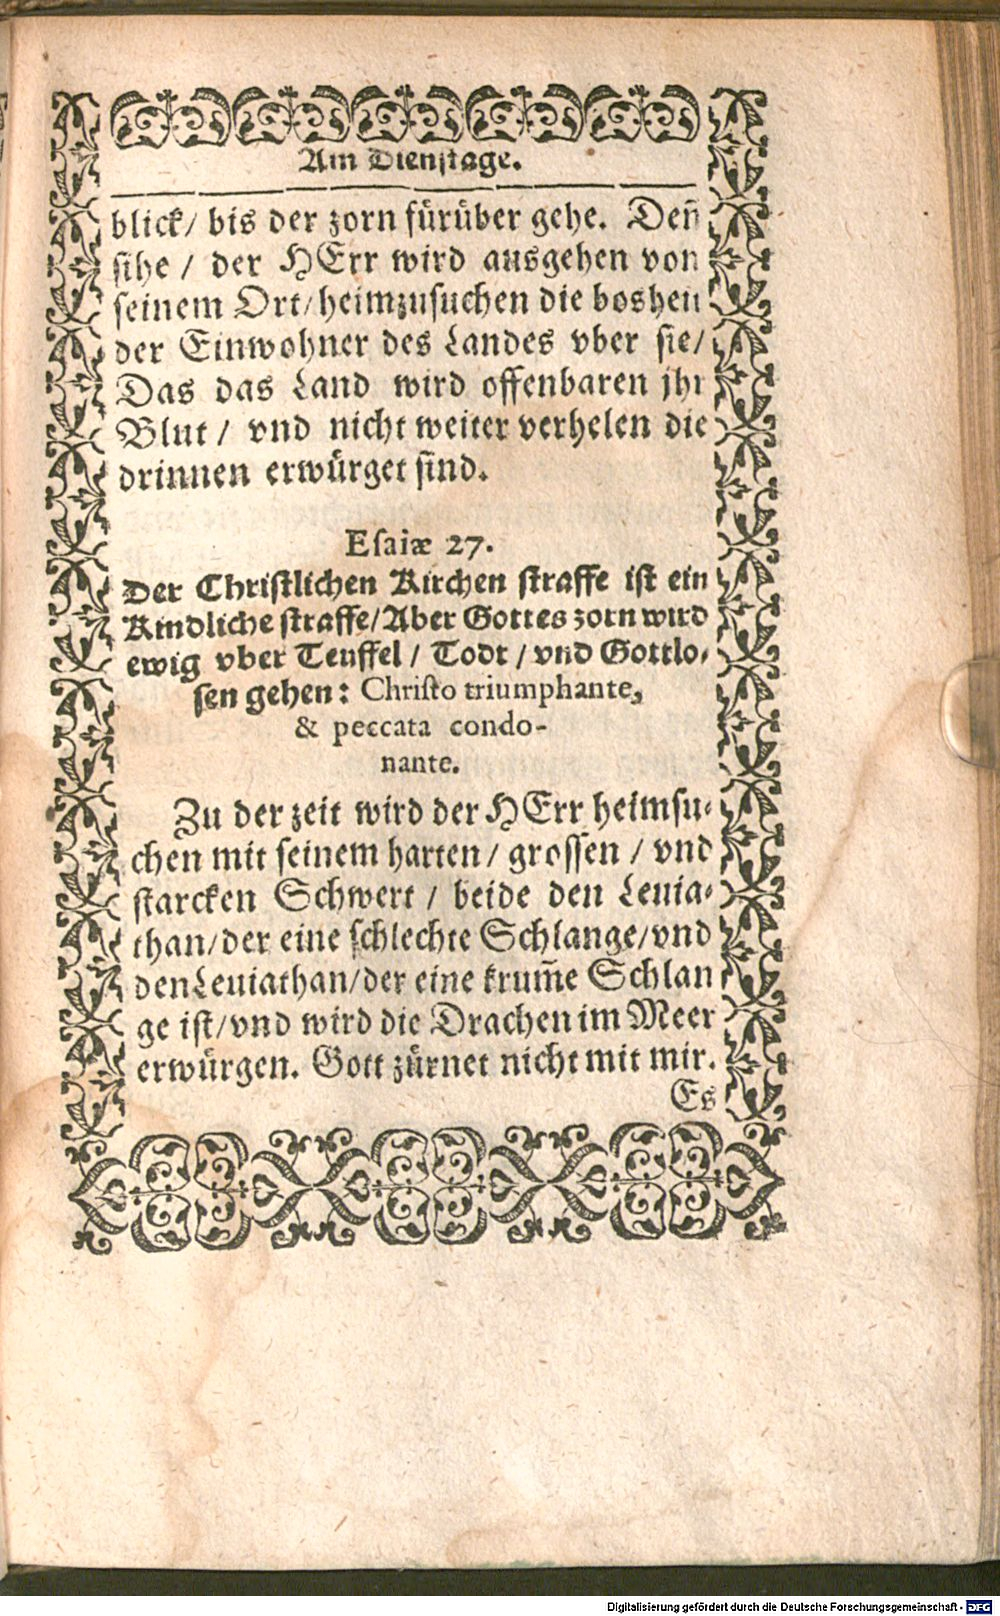 Am Dienstage.
blick/ bis der zorn fürüber gehe. Deñ
sihe / der HErr wird ausgehen von
seinem Ort/ heimzusuchen die bosheit
der Einwohner des Landes vber sie/
Das das Land wird offenbaren jhr
Blut / vnd nicht weiter verhelen die
drinnen erwürget sind.
Esaiæ 27.
Der Christlichen Kirchen straffe ist ein
Kindliche straffe/ Aber Gottes zorn wird
ewig vber Teuffel / Todt / vnd Gottlo-
sen gehen: Christo triumphante,
& peccata condo-
nante.
Zu der zeit wird der HErr heimsu-
chen mit seinem harten / grossen / vnd
starcken Schwert / beide den Leuia-
than/ der eine schlechte Schlange/ vnd
den Leuiathan/ der eine krum̃e Schlan
ge ist/ vnd wird die Drachen im Meer
erwürgen. Gott zürnet nicht mit mir.
Es
Digitalisierung gefördert durch die Deutsche Forschungsgemeinschaft - DFG